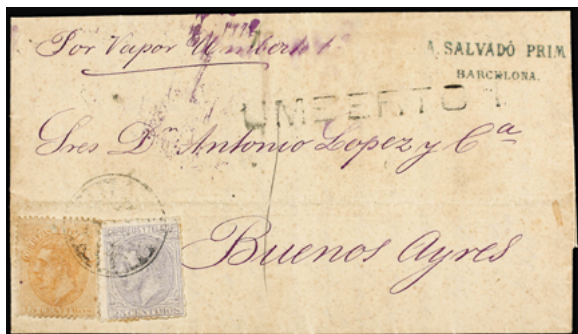 Por Vapor Umberto 1º
A. SALVADÓ PRIM
BARCELONA.
UMBERTO 1.
Sres Dn Antonio Lopez y Cª
Buenos Ayres
CENTIMOS